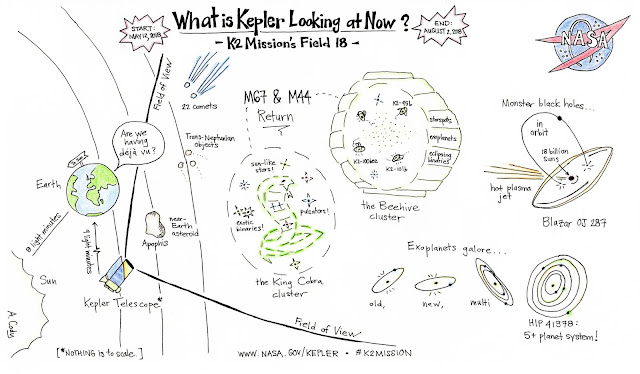 START:
MAY 12, 2018
What is Kepler Looking at Now?
END:
AUGUST 2, 2018
- K2 Mission's Field 18 -
NASA
Field of View
22 comets
M67 & M44
Return
Are we
having
déjà vu?
Trans-Neptunian
objects
Earth
8 light minutes
9 light minutes
near-
Earth
asteroid
Apophis
Sun
Kepler Telescope*
sun-like
stars!
exotic
binaries!
pulsators!
the King Cobra
cluster
K2-95b
starspots
exoplanets
eclipsing
binaries
K2-101b
the Beehive
cluster
Monster black holes...
in
orbit
18 billion
suns
hot plasma
jet
Blazar OJ 287
Exoplanets galore...
old,
new,
multi
HIP 41378:
5+ planet system!
Field of View
[*NOTHING is to scale.]
WWW.NASA.GOV/KEPLER • #K2MISSION